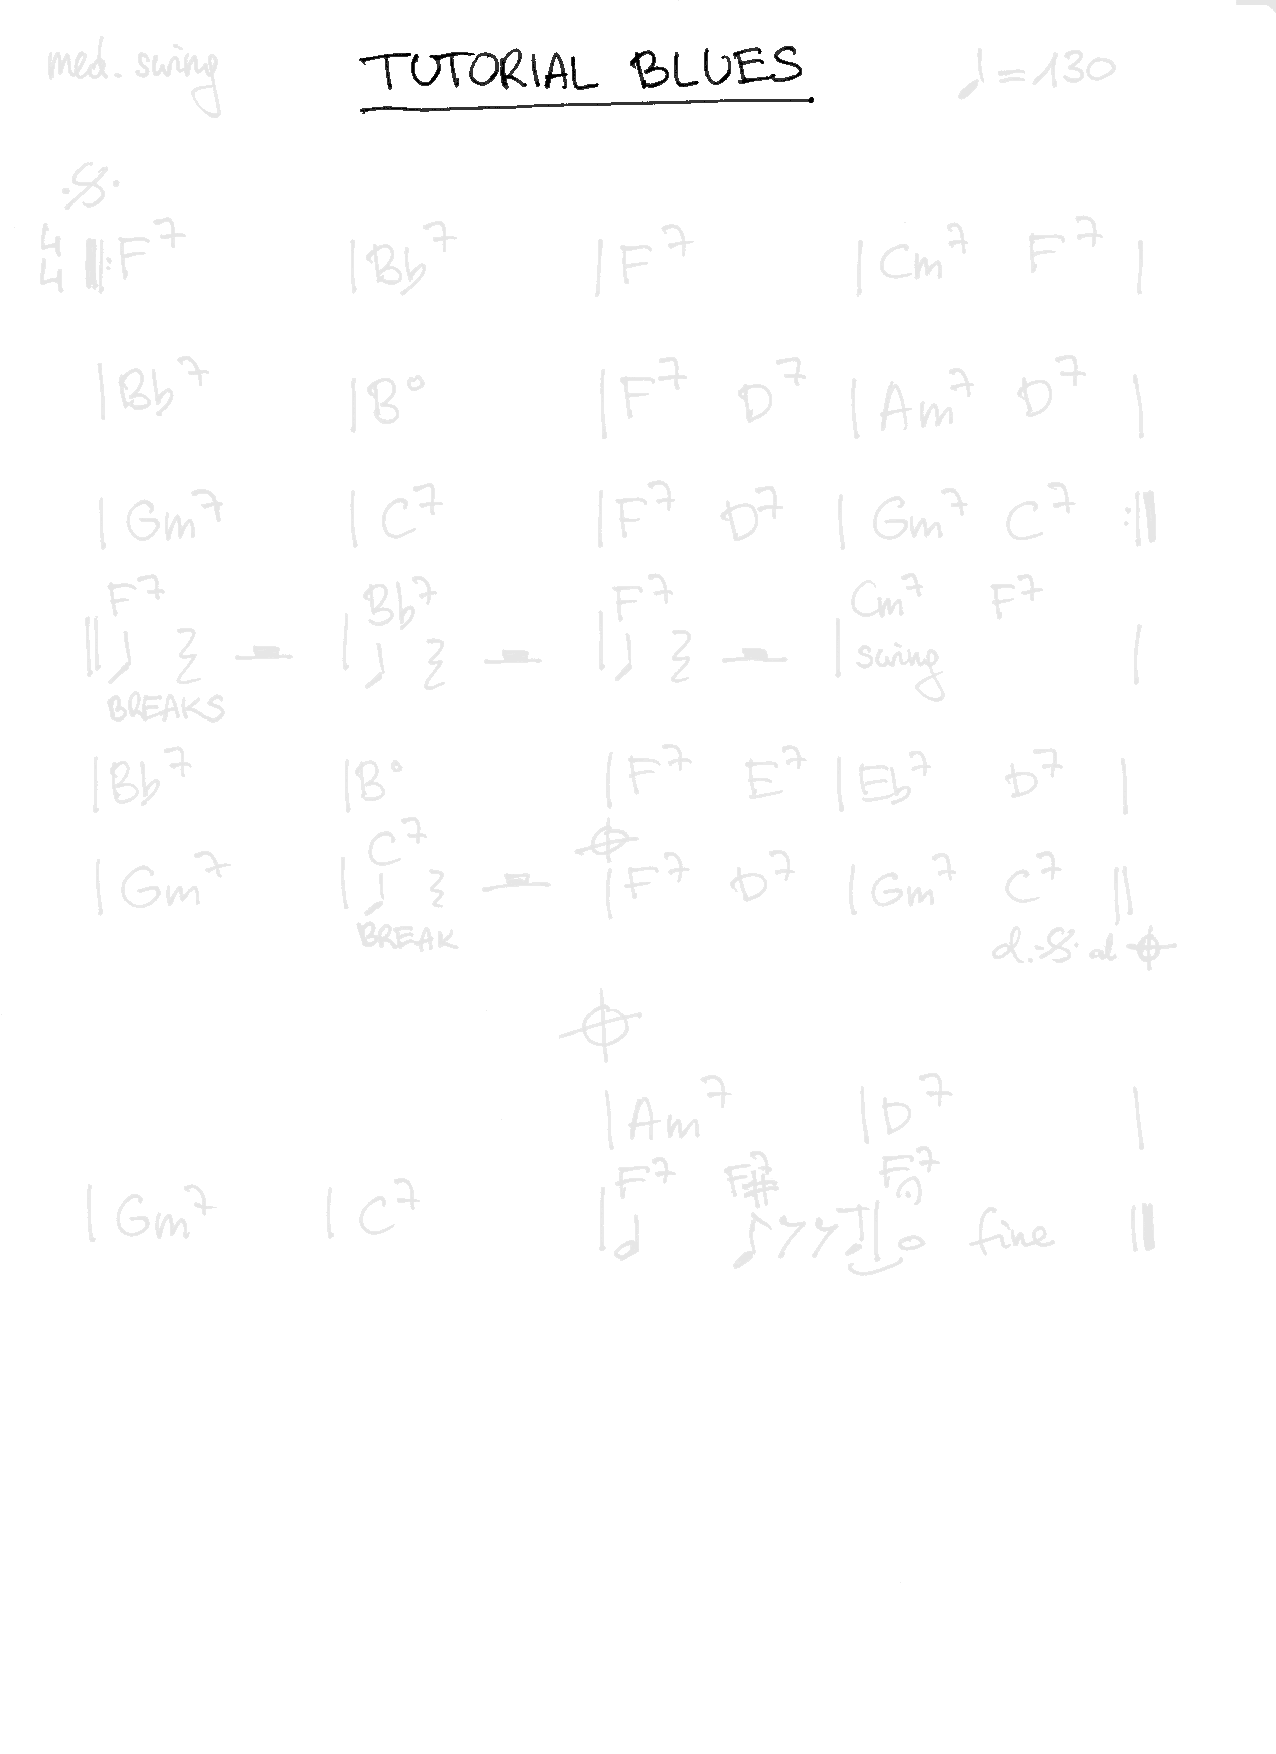 med. swing TUTORIAL BLUES ♩ = 130
𝄋
4/4 𝄆 F7 | Bb7 | F7 | Cm7 F7 |
| Bb7 | B° | F7 D7 | Am7 D7 |
| Gm7 | C7 | F7 D7 | Gm7 C7 𝄇
F7 Bb7 F7 Cm7 F7
swing
BREAKS
| Bb7 | B° | F7 E7 | Eb7 D7 |
C7
| Gm7 | F7 D7 | Gm7 C7 ||
BREAK d.𝄋. al 𝄌
𝄌
| Am7 | D7 |
F7 F#7 F7
| Gm7 | C7 | fine